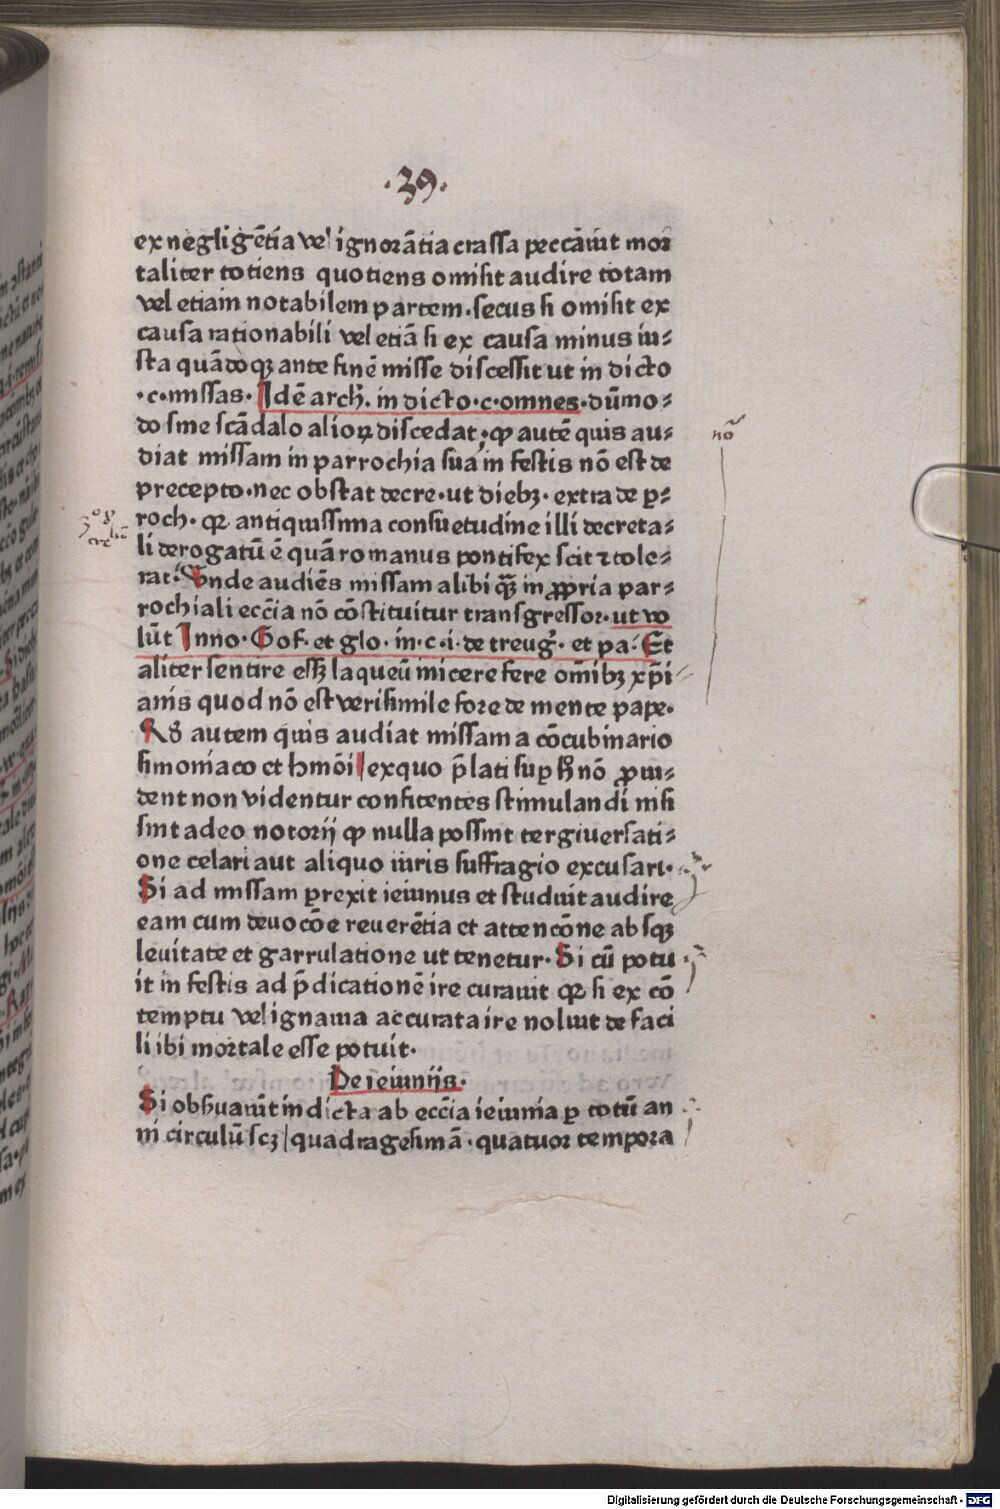 .39.
ex negligẽtia vel ignorãtia crassa peccãuit mor
taliter totiens quotiens omisit audire totam
vel etiam notabilem partem.secus si omisit ex
causa rationabili vel etiã si ex causa minus iu⸗
sta quãdoqꝫ ante finẽ misse discessit ut in dicto
.c.missas. Idẽ arch̄. in dicto.c.omnes.dũmo⸗
do sine scãdalo alioꝝ discedat.ꝙ autẽ quis au⸗
diat missam in parrochia sua in festis nõ est de
precepto.nec obstat decre.ut diebꝫ. extra de ꝑ⸗
roch. qꝛ antiquissima consuetudine illi decreta⸗
li derogatũ ẽ quã romanus pontifex scit ⁊ tole⸗
rat. Vnde audiẽs missam alibi qꝫ̃ in ꝓpria par⸗
rochiali ecc̃ia nõ cõstituitur transgressor.ut vo
lũt Inno. Gof. et glo. in.c.i.de treug̃. et pa. Et
aliter sentire essꝫ laqueũ inicere fere om̃ibꝫ xp̃i
anis quod nõ est verisimile fore de mente pape.
An autem quis audiat missam a cõcubinario
simoniaco et hmõi exquo p̃lati suꝑ hͦ nõ ꝓui⸗
dent non videntur confitentes stimulandi nisi
sint adeo notorij ꝙ nulla possint tergiuersati⸗
one celari aut aliquo iuris suffragio excusari.
Si ad missam ꝑrexit ieiunus et studuit audire
eam cum deuocõe reuerẽtia et attencõne absqꝫ
leuitate et garrulatione ut tenetur. Si cũ potu
it in festis ad p̃dicationẽ ire curauit qꝛ si ex cõ
temptu vel ignauia accurata ire noluit de faci
li ibi mortale esse potuit.
De ieiunijs.
Si obẜuauit indicta ab ecc̃ia ieiunia ꝑ totũ an
ni circulũ scꝫ quadragesimã . quatuor tempora
nõ
Digitalisierung gefördert durch die Deutsche Forschungsgemeinschaft - DFG